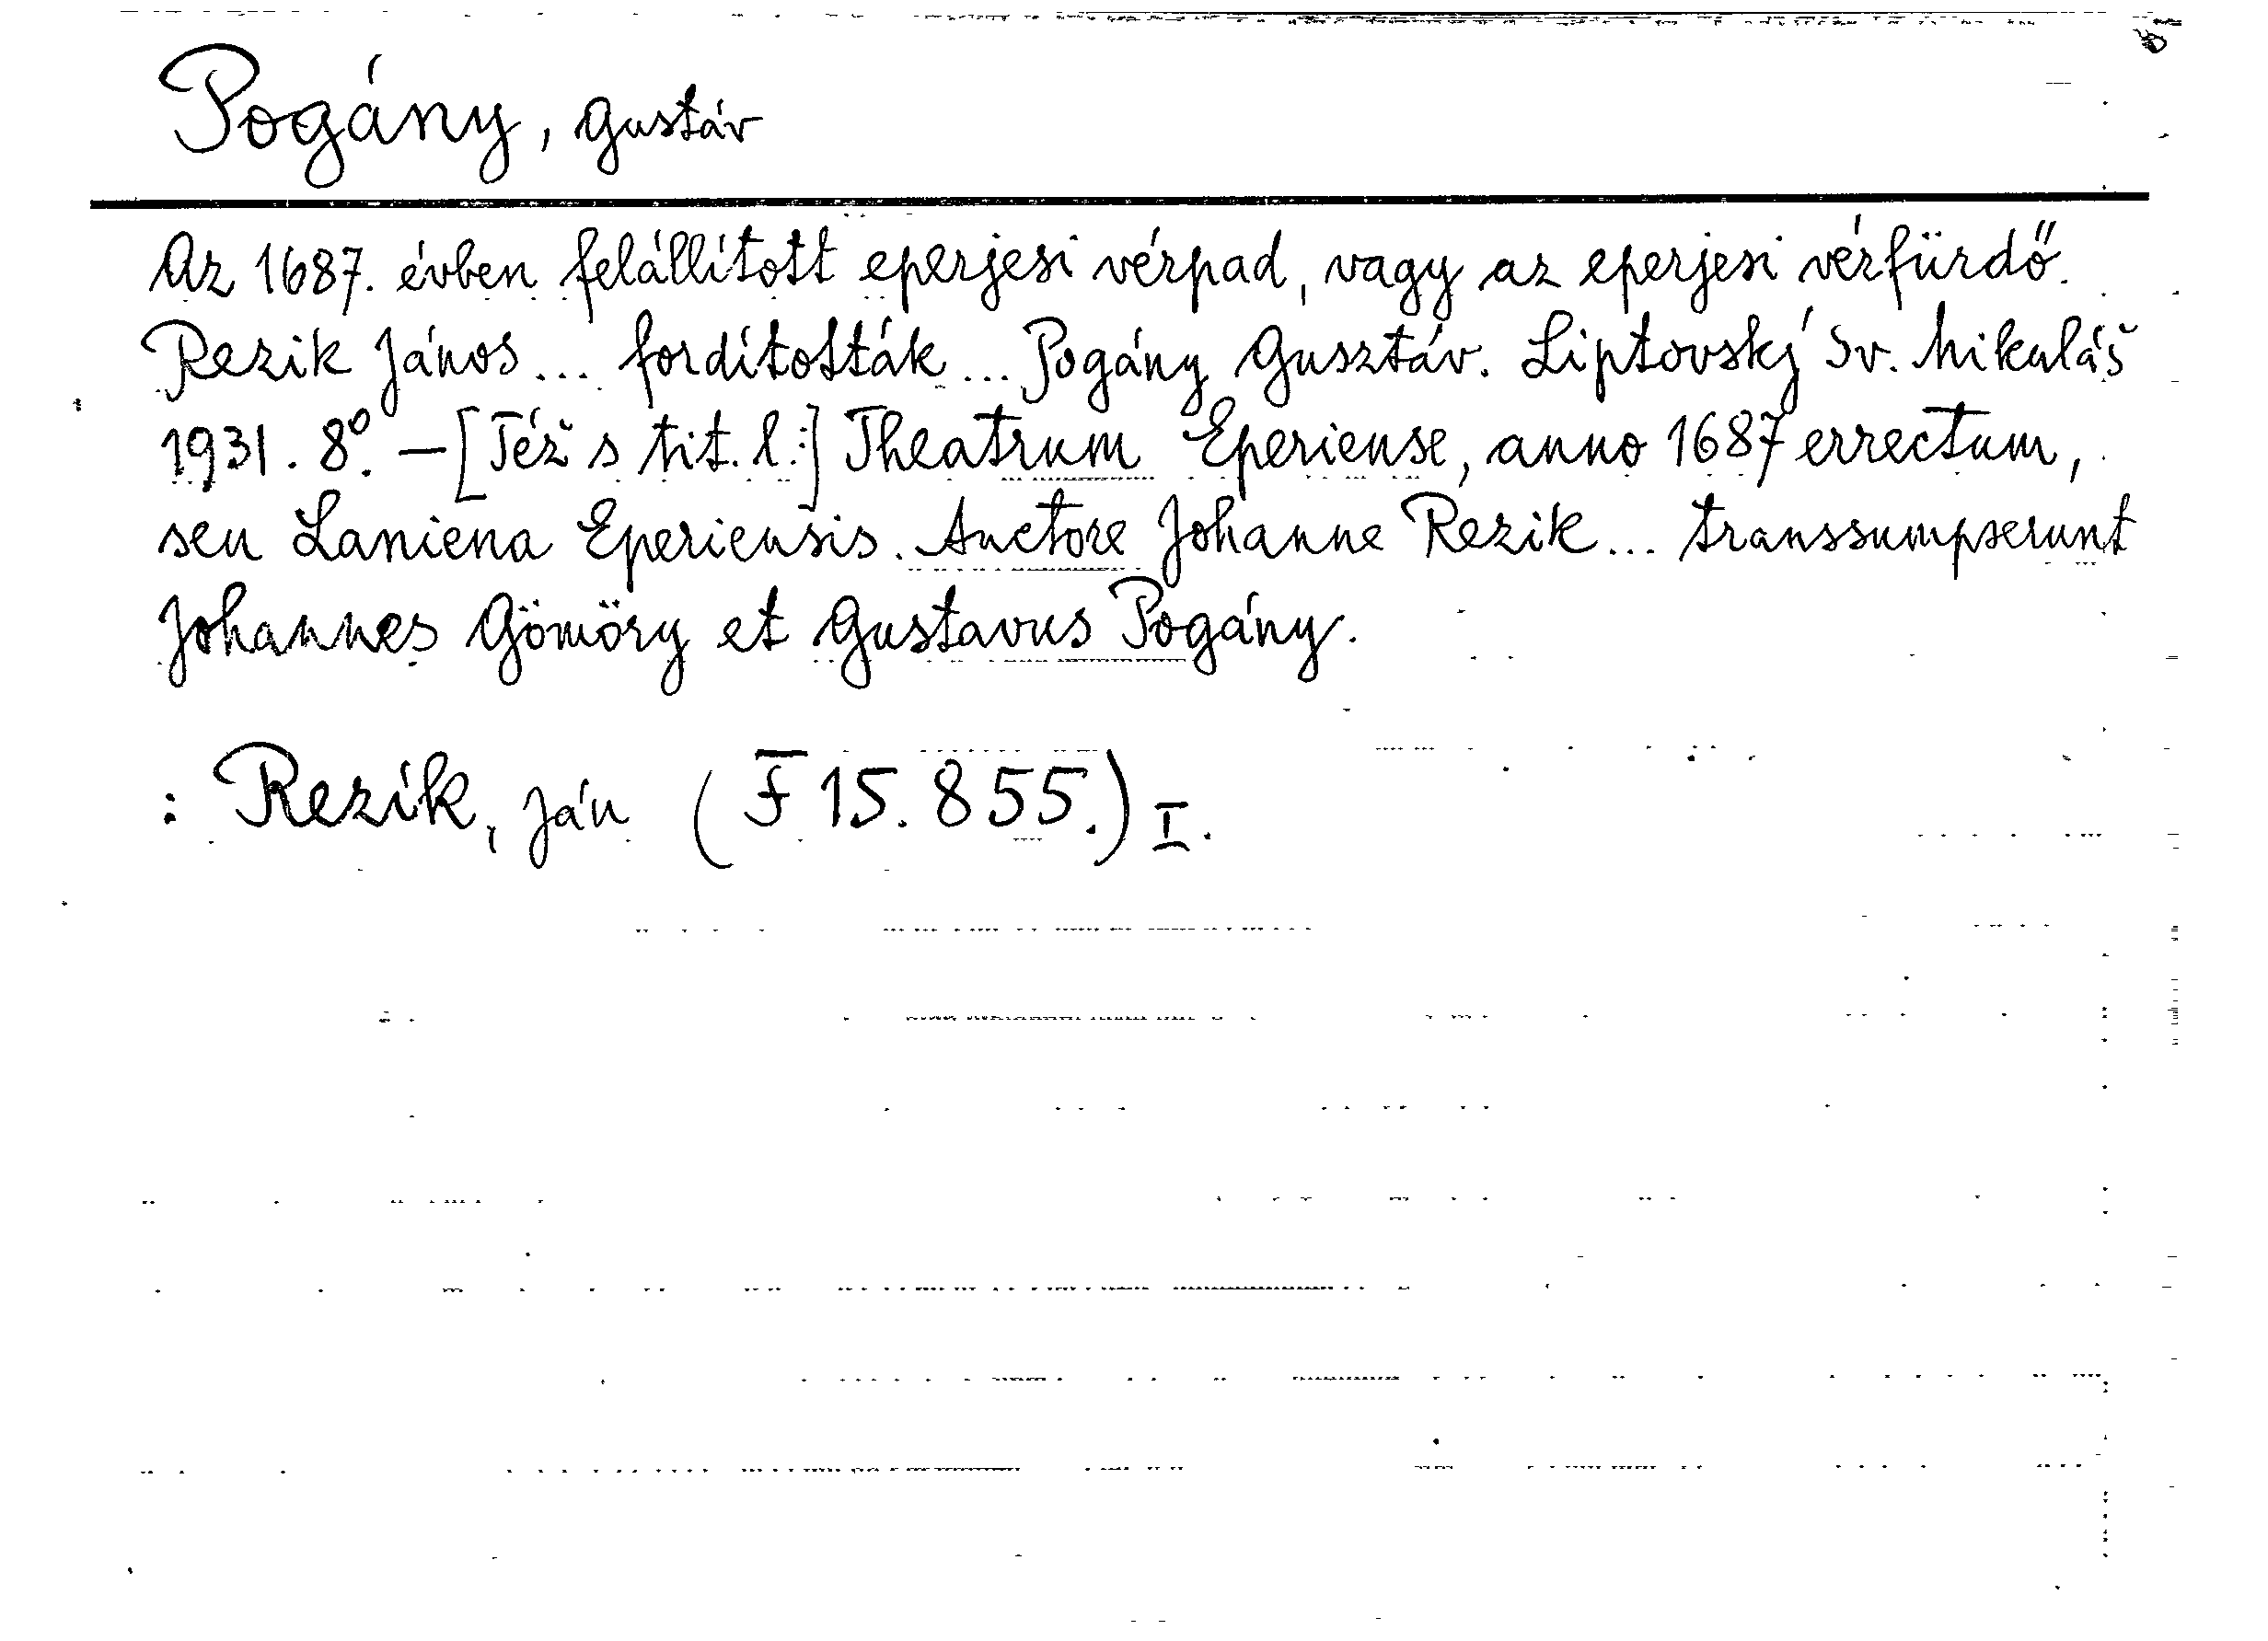 Pogány, Gustáv
Az 1687. évben felállított eperjesi vérpad, vagy az eperjesi vérfürdő.
Rezik János... fordították... Pogány Gusztáv. Liptovský Sv. Mikuláš
1931. 8°. — [Též s tit. l.:] Theatrum Eperiense, anno 1687 errectum,
seu Laniena Eperiensis. Auctore Johanne Rezik... transsumpserunt
Johannes Gömöry et Gustavus Pogány.
: Rezik, Ján (F 15.855.) I.